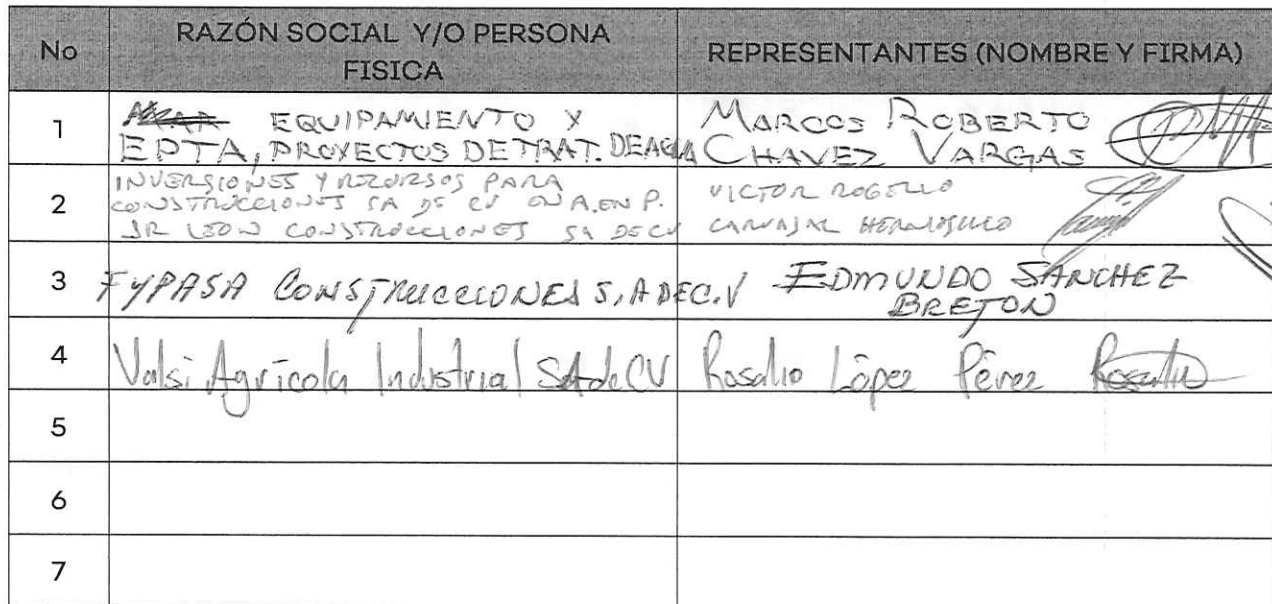 No
RAZÓN SOCIAL Y/O PERSONA
FISICA
REPRESENTANTES (NOMBRE Y FIRMA)
1
EQUIPAMIENTO Y
EPTA, PROYECTOS DE TRAT. DE AGUA
MARCOS ROBERTO
CHAVEZ VARGAS
2
INVERSIONES Y RECURSOS PARA
CONSTRUCCIONES SA DE CV EN A. EN P.
JR LEON CONSTRUCCIONES SA DE CV
VICTOR ROGELIO
CARVAJAL HERMOSILLO
3
FYPASA CONSTRUCCIONES S.A DE C.V
EDMUNDO SANCHEZ
BRETON
4
Valsi Agrícola Industrial SA de CV
Rosalio López Pérez
5
6
7